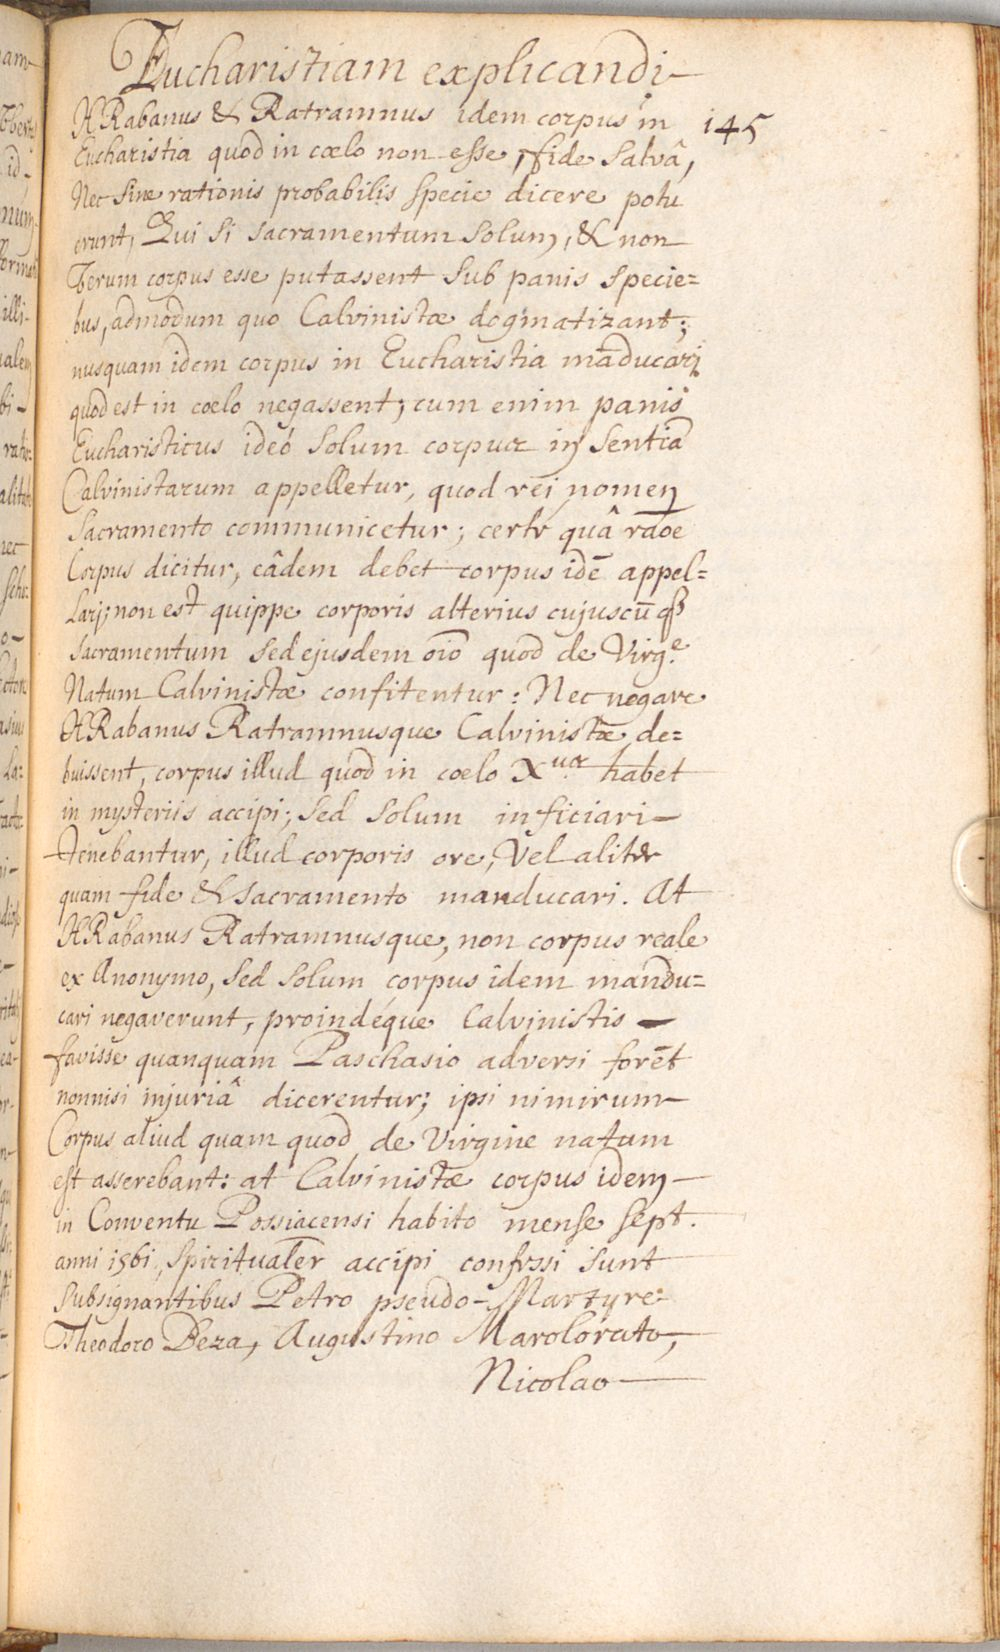 Eucharistiam explicandi-
HRabanus & Ratramnus idem corpus in 145
Eucharistia quod in cœlo non esse, fide salvâ,
Nec sine rationis probabilis specie dicere potu
erunt, Qui si sacramentum solum, & non
Verum corpus esse putassent sub panis specie=
bus, admodum quo Calvinistæ dogmatizant;
nusquam idem corpus in Eucharistia māducari
quod est in cœlo negassent; cum enim panis
Eucharisticus ideó solum corpus in sentiā
Calvinistarum appelletur, quod rei nomen
Sacramento communicetur; certe quâ raōe
Corpus dicitur, eâdem debet corpus idē appel=
lari; non est quippe corporis alterius cujuscūq3
sacramentum sed ejusdem oīo quod de Virg.e
Natum Calvinistæ confitentur: Nec negare
HRabanus Ratramnusque Calvinistæ de=
buissent, corpus illud quod in cœlo Xus habet
in mysteriis accipi; sed solum inficiari-
tenebantur, illud corporis ore, Vel aliter
quam fide & sacramento manducari. At
HRabanus Ratramnusque, non corpus reale
ex Anonymo, sed solum corpus idem mandu=
cari negaverunt, proindéque Calvinistis-
favisse quanquam Paschasio adversi forēt
nonnisi injuriâ dicerentur; ipsi nimirum-
Corpus aliud quam quod de Virgine natum
est asserebant: at Calvinistæ corpus idem-
in Conventu Possiacensi habito mense sept.
anni 1561, Spiritualer accipi confessi sunt
Subsignantibus Petro pseudo-Martyre
Theodoro Beza, Augustino Marolorato,
Nicolao-